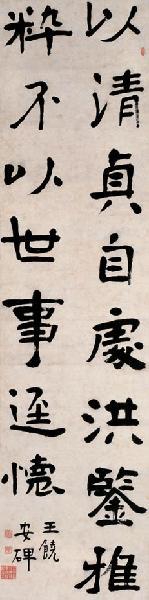 以清真自處洪鑒雅
粹不以世事逕懷
王饒
安碑